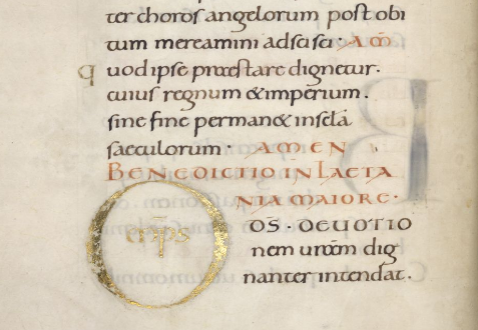 ter choros angelorum post obi
tum mereamini adscisci · AM̄
quod ipse praestare dignetur.
cuius regnum & imperium.
sine fine perman& insclā
saeculorum · AMEN
BENEDICTIO IN LAETA
NIA MAIORE ·
Omp̄s D̄S · DEUOTIO
nem ur̄am dig
nanter intendat.